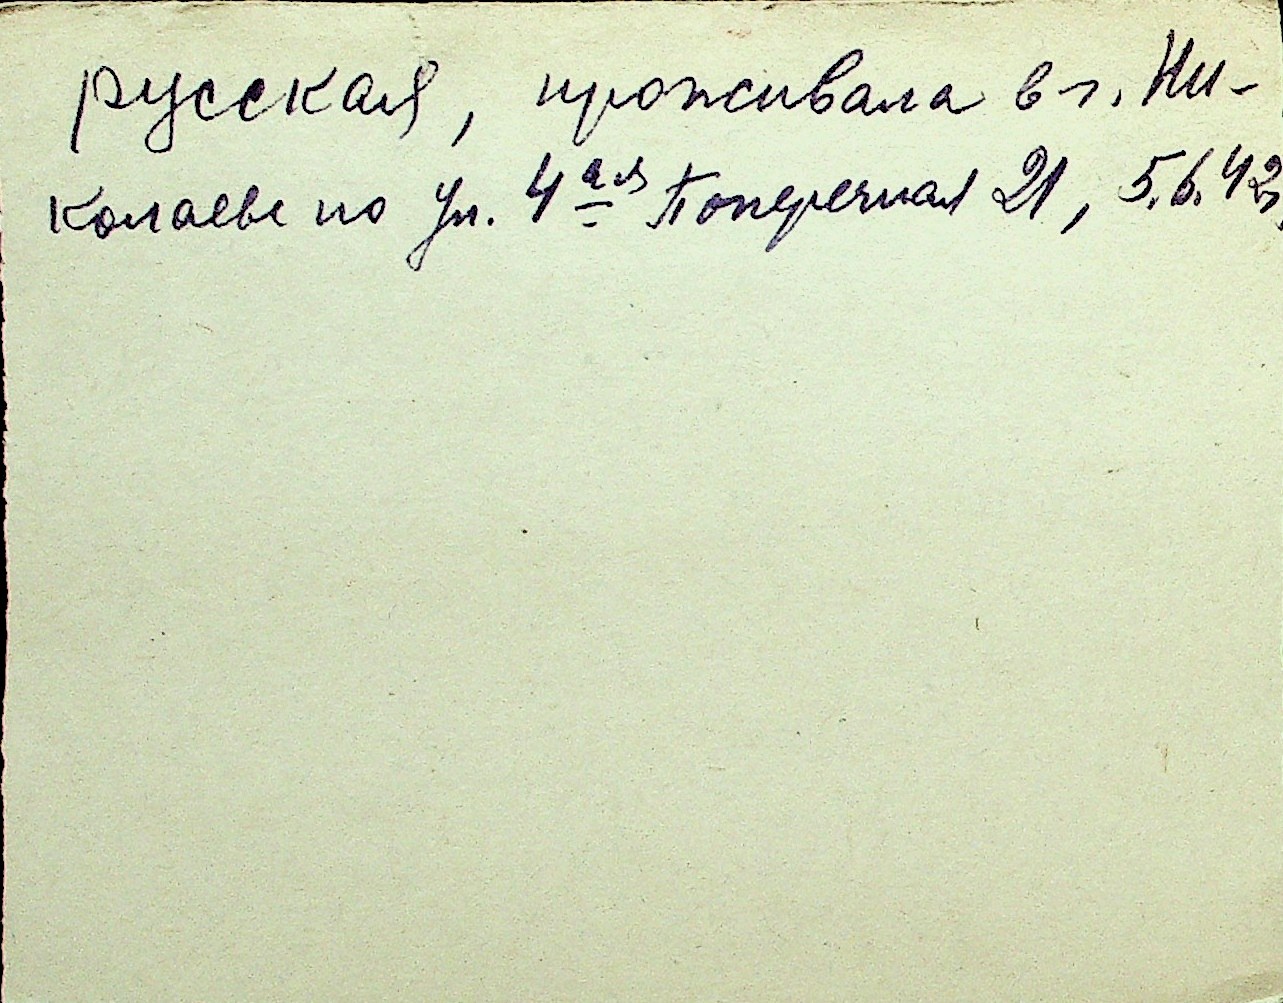 русская, проживала в г. Ни-
колаеве по ул. 4ая Поперечная 21, 5.6.42г.